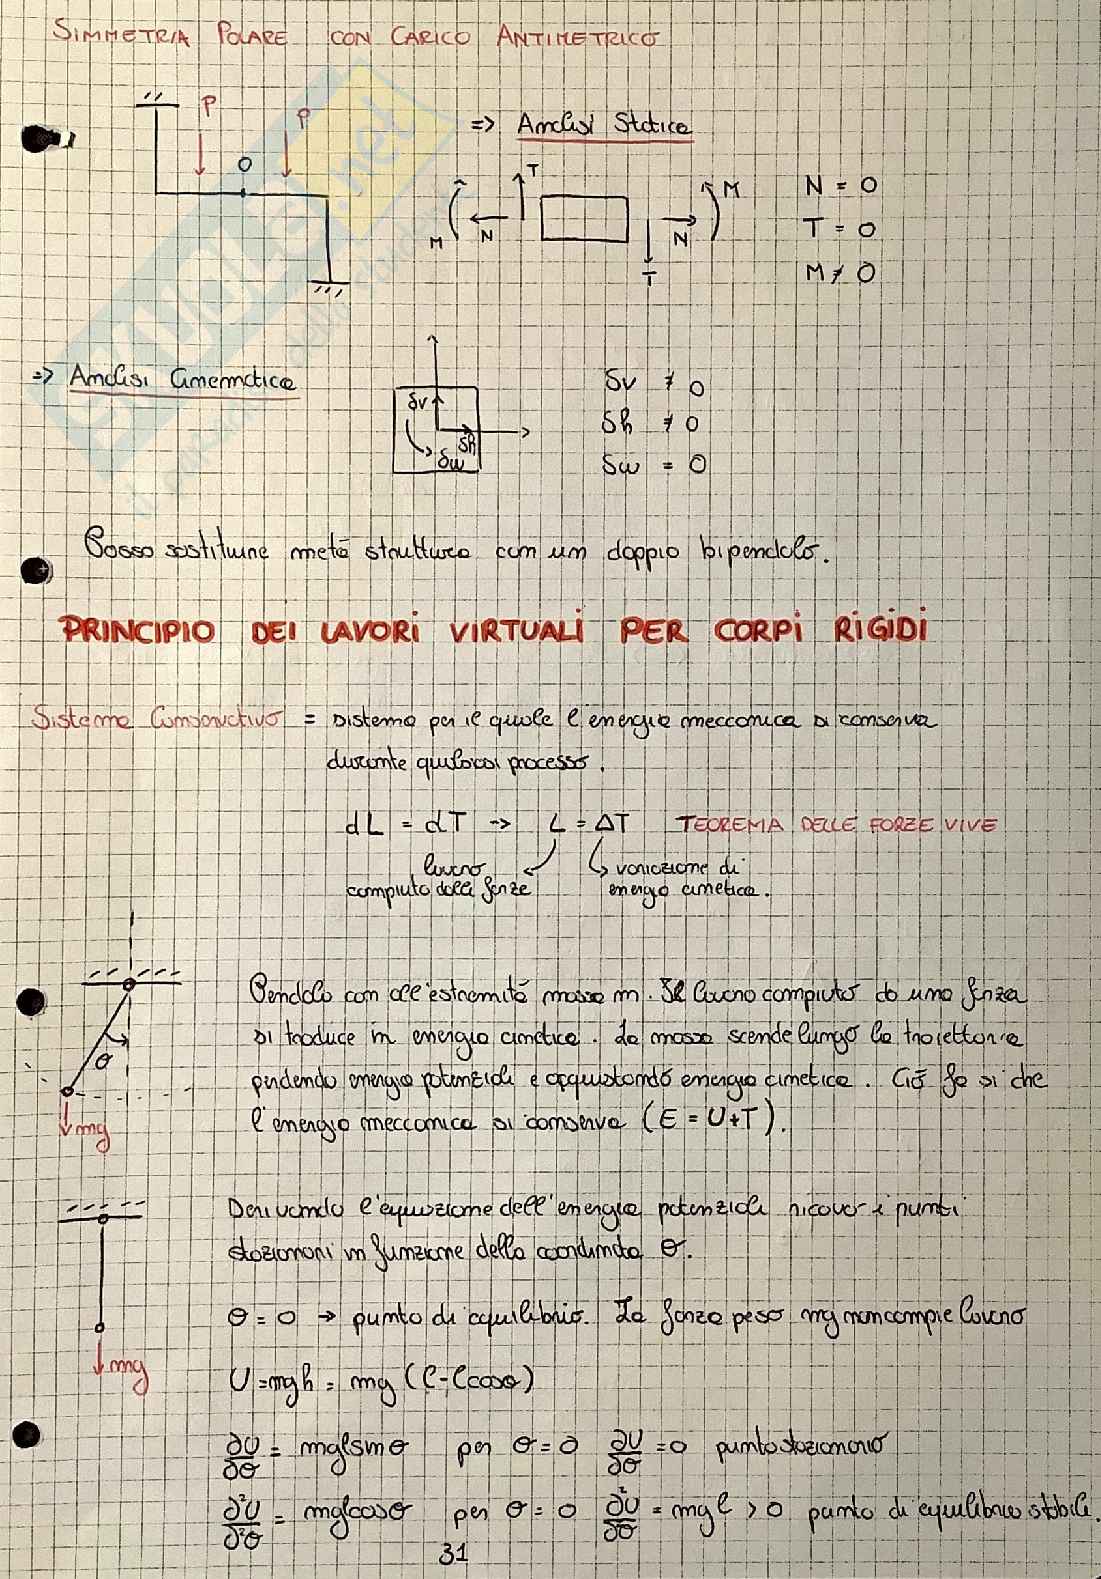 SIMMETRIA POLARE CON CARICO ANTIMETRICO
P
P
O
=> Analisi Statica
M N T
T N M
N = 0
T = 0
M ≠ 0
=> Analisi Cinematica
δv
δh
δω
δv ≠ 0
δh ≠ 0
δω = 0
Posso sostituire metà struttura con un doppio bipendolo.
PRINCIPIO DEI LAVORI VIRTUALI PER CORPI RIGIDI
Sistema Conservativo = sistema per il quale l'energia meccanica si conserva
durante qualsiasi processo.
dL = dT -> L = ΔT TEOREMA DELLE FORZE VIVE
lavoro
compiuto dalle forze
variazione di
energia cinetica.
Pendolo con all'estremità massa m. Il lavoro compiuto da una forza
si traduce in energia cinetica. La massa scende lungo la traiettoria
perdendo energia potenziale e acquistando energia cinetica. Ciò fa si che
l'energia meccanica si conserva (E = U+T).
θ
mg
Derivando l'equazione dell'energia potenziale ricavo i punti
stazionari in funzione della coordinata θ.
θ = 0 → punto di equilibrio. La forza peso mg non compie lavoro
mg
U = mgh = mg (l - lcosθ)
∂U/∂θ = mglsinθ per θ = 0 ∂U/∂θ = 0 punto stazionario
∂²U/∂²θ = mglcosθ per θ = 0 ∂²U/∂θ = mgl > 0 punto di equilibrio stabile.
31